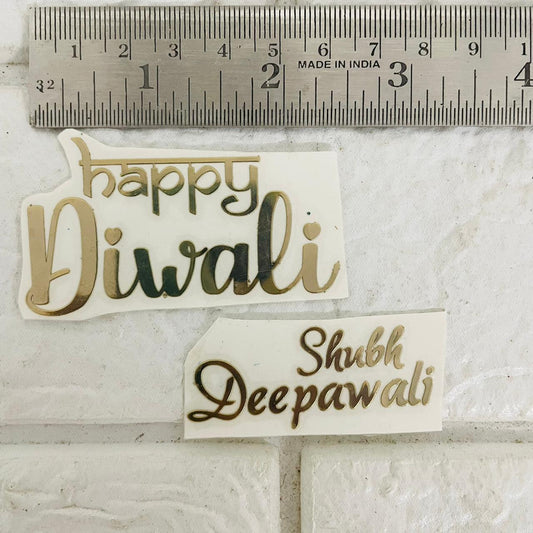 1 2 3 4 5 6 7 8 9 1
MADE IN INDIA
32 1 2 3 4
happy
Diwali
Shubh
Deepawali